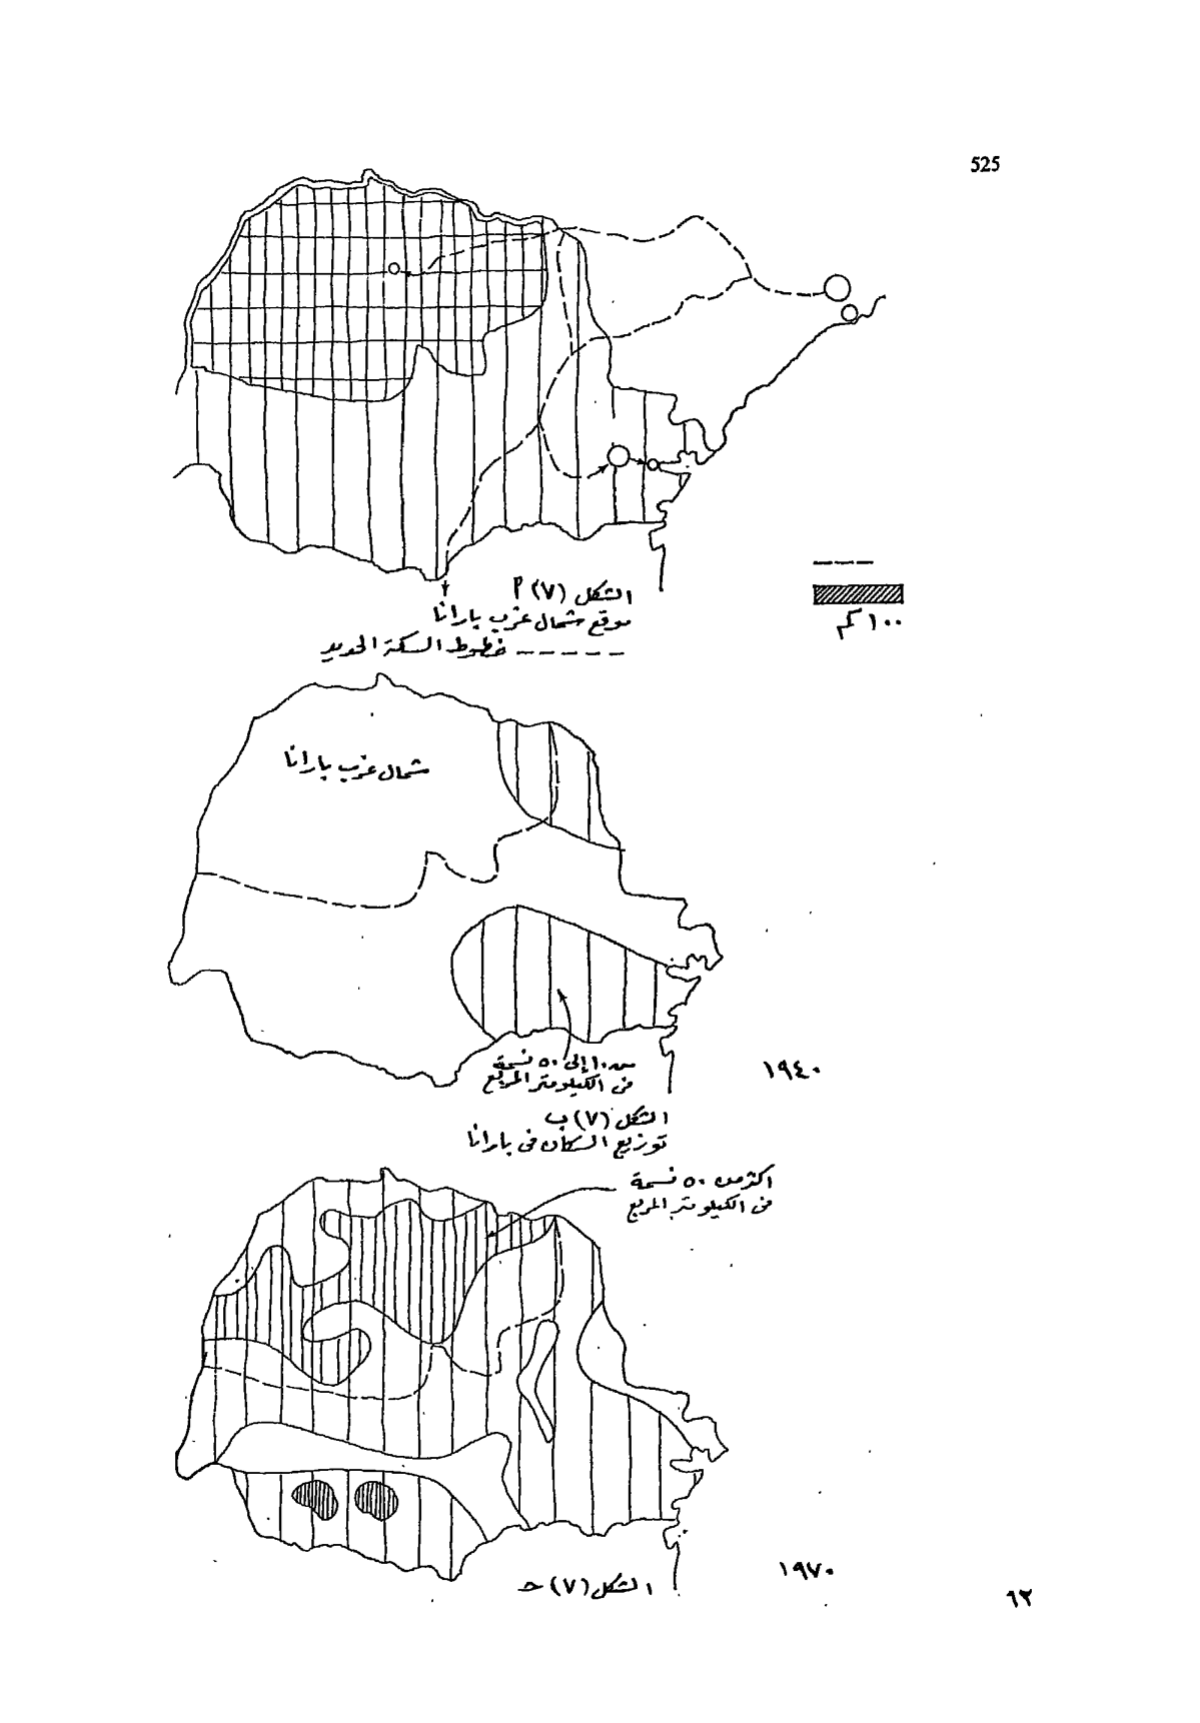 525
الشكل (٧) أ
موقع شمال غرب بارانا
----- خطوط السكة الحديد
١٠٠ كم
شمال غرب بارانا
من ١٠ إلى ٥٠ نسمة
فى الكيلو متر المربع
١٩٤٠
الشكل (٧) ب
توزيع السكان فى بارانا
اكثر من ٥٠ نسمة
فى الكيلو متر المربع
١٩٧٠
الشكل (٧) حـ
٦٢